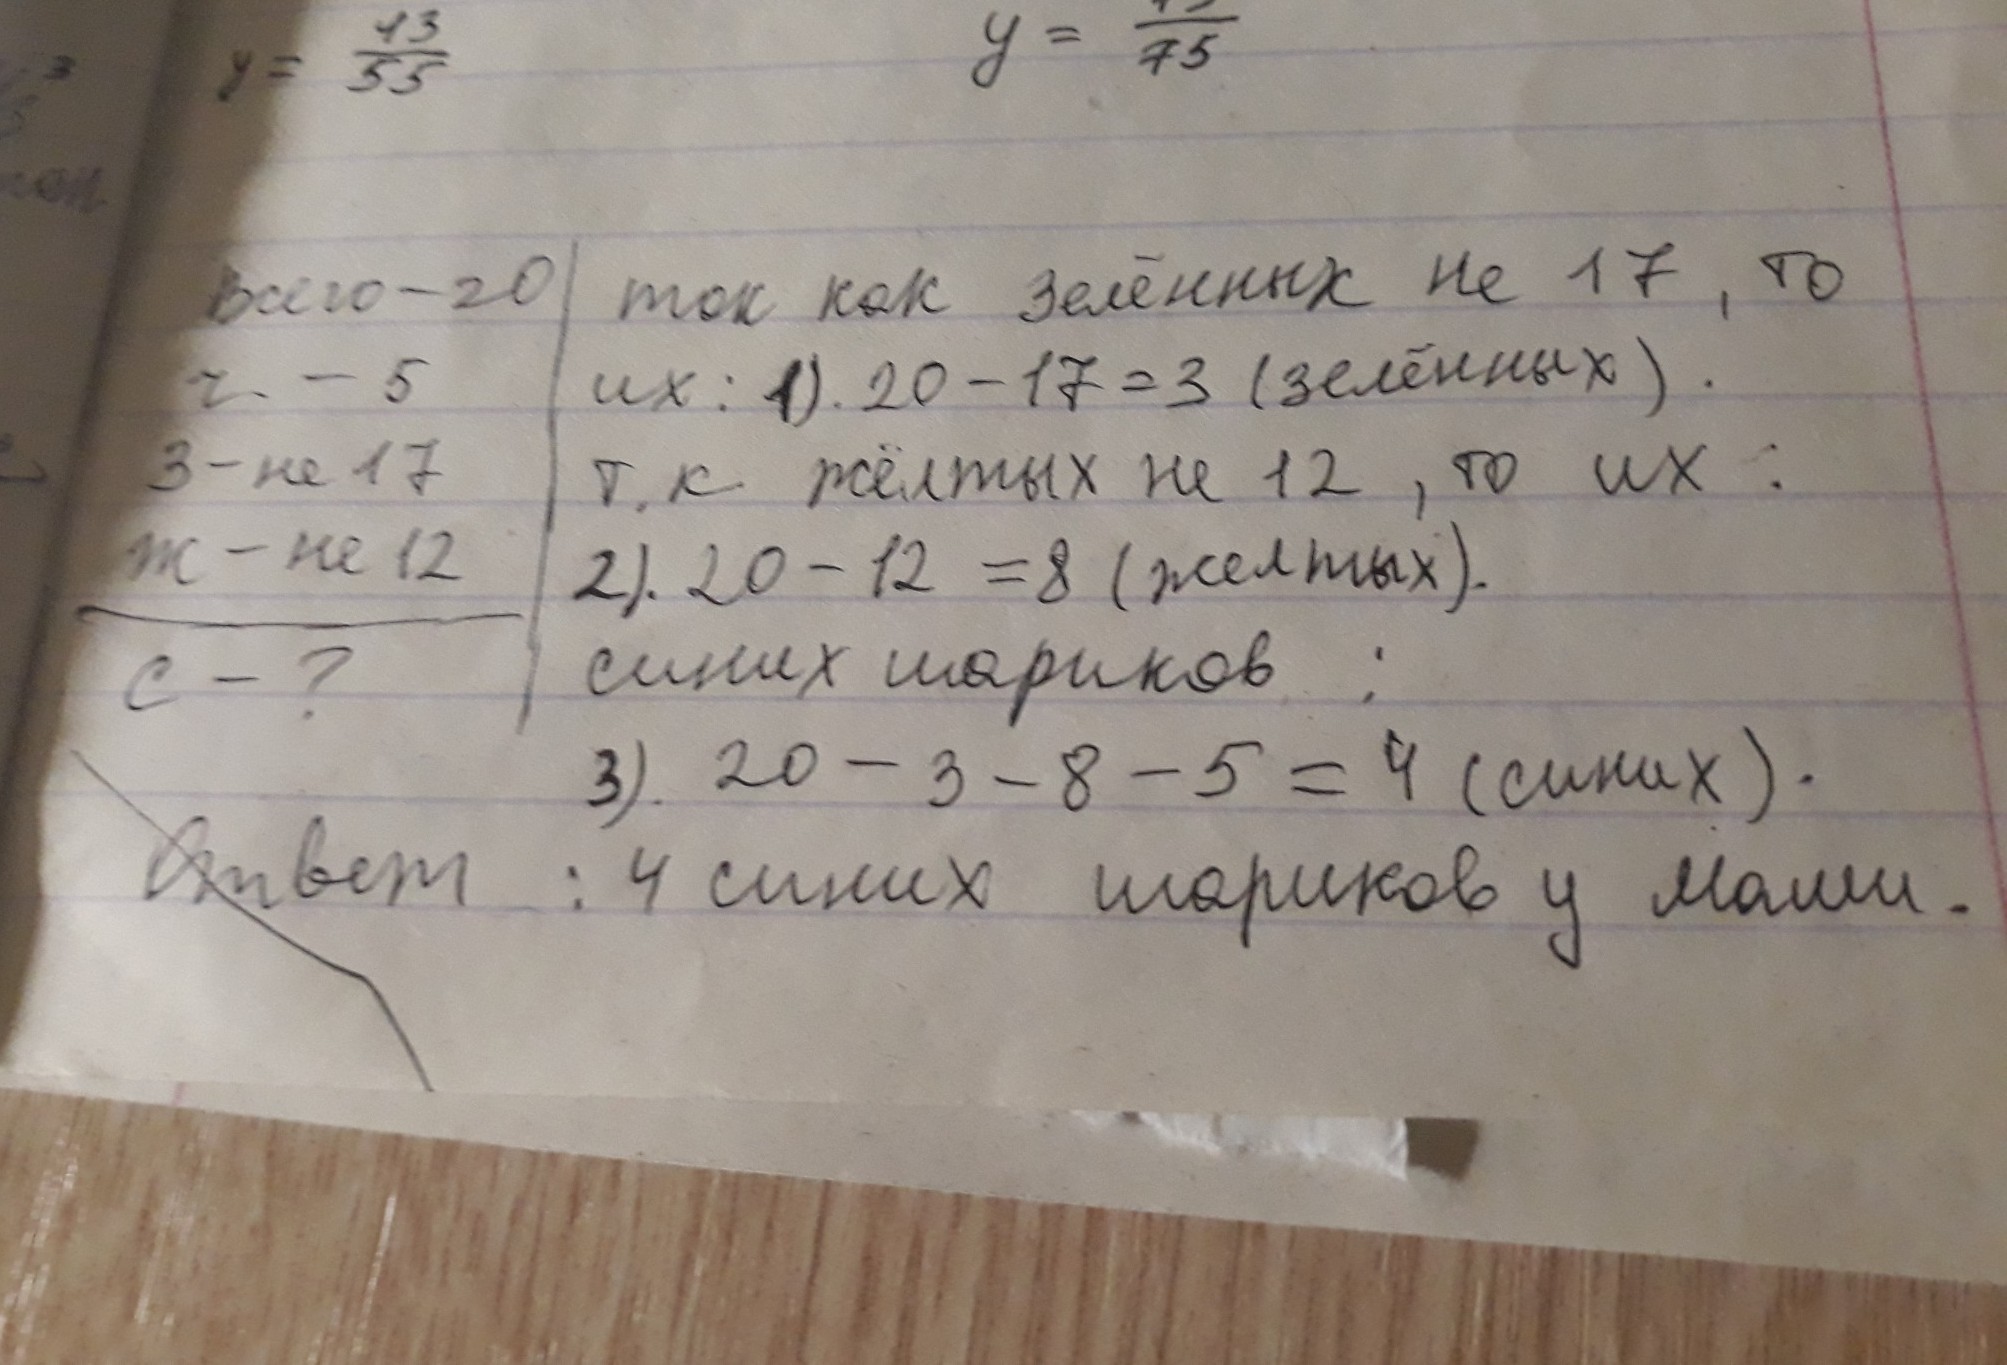 y = 13/55
y = /75
Всего - 20
ч. - 5
З - не 17
ж - не 12
с - ?
ток как зелённых не 17, то
их: 1). 20 - 17 = 3 (зелённых).
т.к. жёлтых не 12, то их:
2). 20 - 12 = 8 (желтых).
синих шариков :
3). 20 - 3 - 8 - 5 = 4 (синих).
Ответ : 4 синих шариков у Маши.